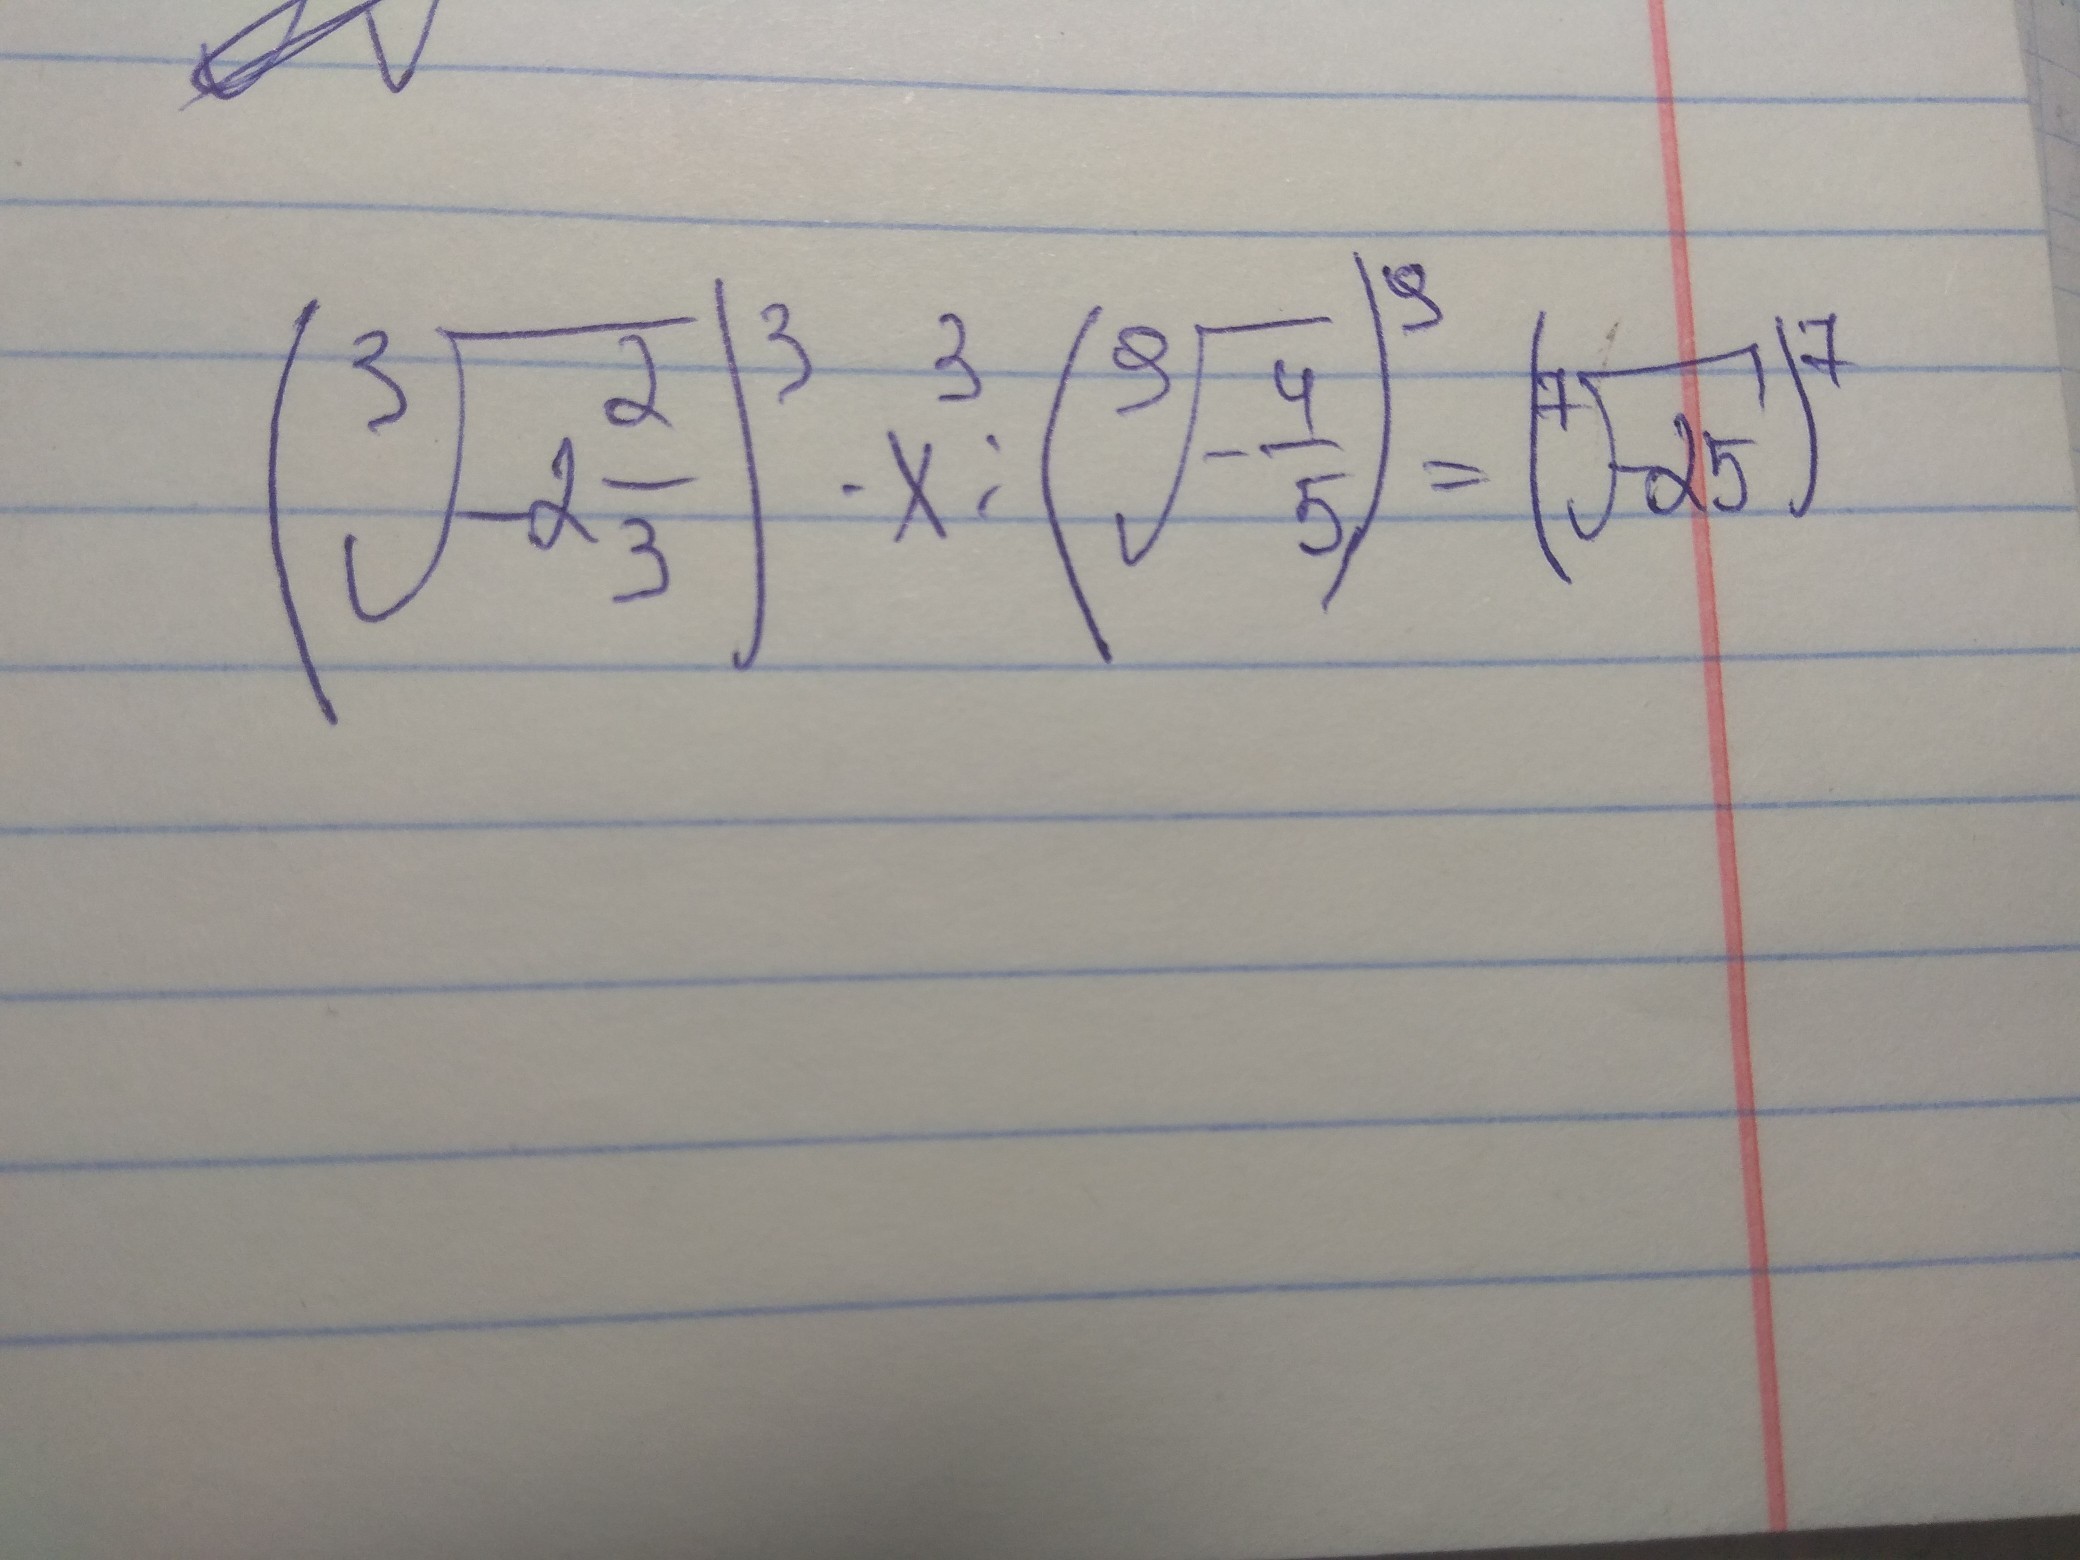 (∛(-2 2/3))³ · x³ : (⁹√(-4/5))⁹ = (⁷√(-25))⁷